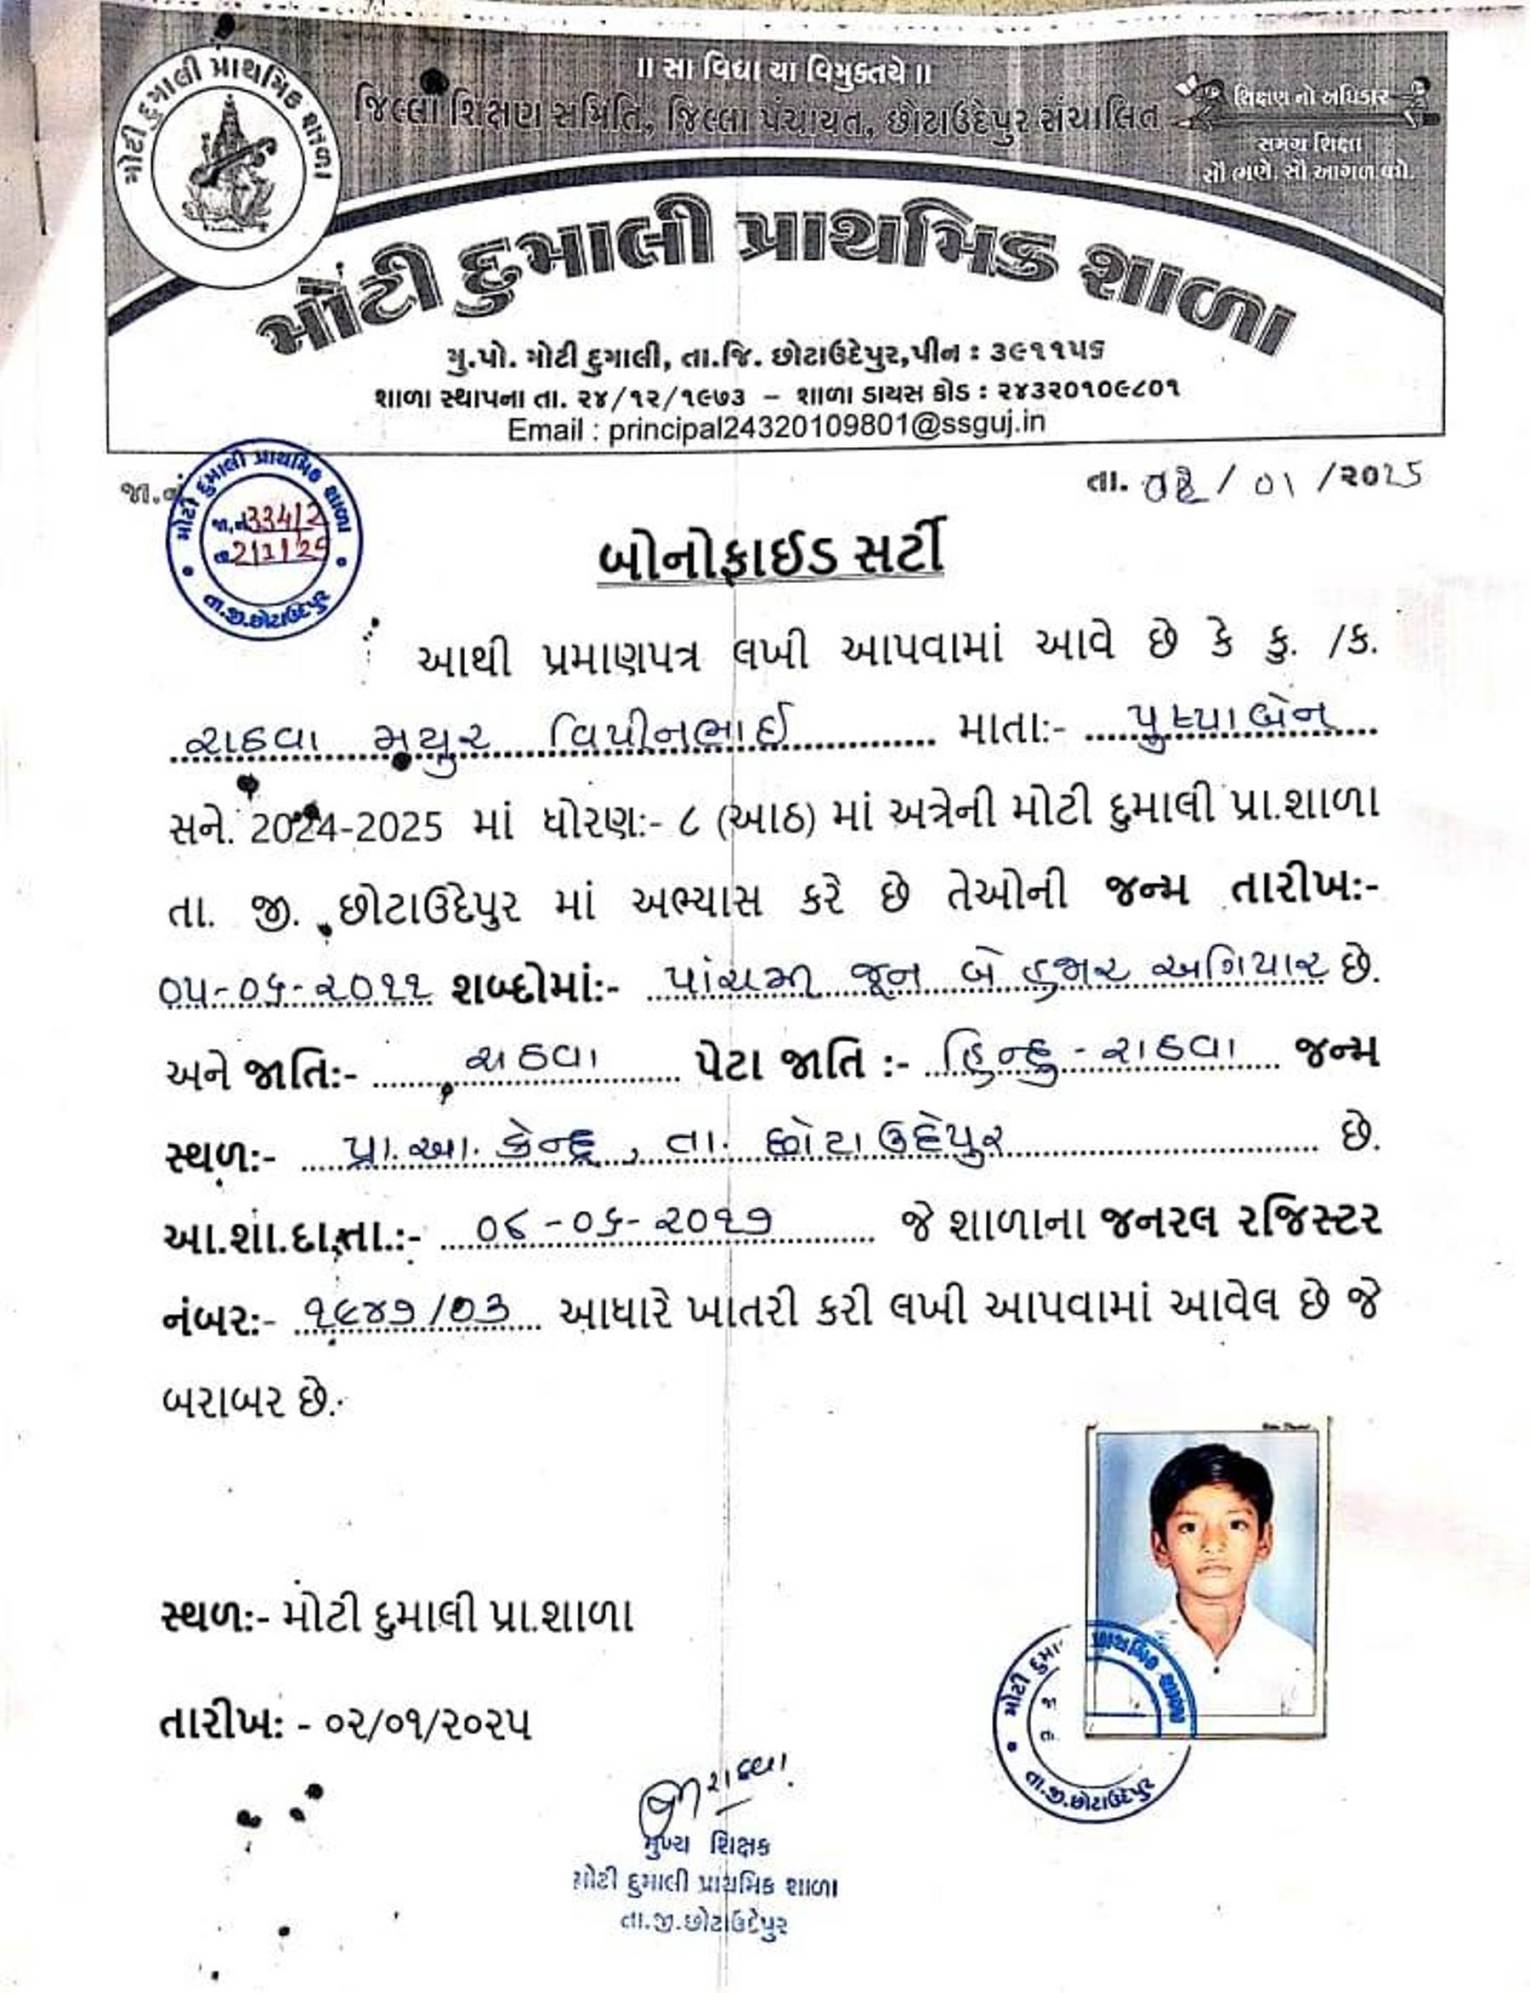 મોટી દુમાલી પ્રાથમિક શાળા
॥ સા વિદ્યા યા વિમુક્તયે ॥
જિલ્લા શિક્ષણ સમિતિ, જિલ્લા પંચાયત, છોટાઉદેપુર સંચાલિત
શિક્ષણ નો અધિકાર
સમગ્ર શિક્ષા
સૌ ભણે. સૌ આગળ વધે.
મોટી દુમાલી પ્રાથમિક શાળા
મુ.પો. મોટી દુમાલી, તા.જિ. છોટાઉદેપુર,પીન : ૩૯૧૧૫૬
શાળા સ્થાપના તા. ૨૪/૧૨/૧૯૭૩ – શાળા ડાયસ કોડ : ૨૪૩૨૦૧૦૯૮૦૧
Email : principal24320109801@ssguj.in
જા.નં
તા. ૦૨/૦૧/૨૦૨૫
મોટી દુમાલી પ્રાથમિક શાળા
જા.નં 334/2
તા. 2/1/25
તા.જી.છોટાઉદેપુર
બોનોફાઈડ સર્ટી
આથી પ્રમાણપત્ર લખી આપવામાં આવે છે કે કુ. /ક.
રાઠવા મયુર વિપીનભાઈ માતા:- પુષ્પાબેન
સને. 2024-2025 માં ધોરણ:- ૮ (આઠ) માં અત્રેની મોટી દુમાલી પ્રા.શાળા
તા. જી. છોટાઉદેપુર માં અભ્યાસ કરે છે તેઓની જન્મ તારીખ:-
૦૫-૦૬-૨૦૧૧ શબ્દોમાં:- પાંચમી જૂન બે હજાર અગિયાર છે.
અને જાતિ:- રાઠવા પેટા જાતિ :- હિન્દુ-રાઠવા જન્મ
સ્થળ:- પ્રા.આ. કેન્દ્ર, તા. છોટાઉદેપુર છે.
આ.શા.દા.તા.:- ૦૮-૦૬-૨૦૧૭ જે શાળાના જનરલ રજિસ્ટર
નંબર:- ૧૯૪૭/૦૩ આધારે ખાતરી કરી લખી આપવામાં આવેલ છે જે
બરાબર છે.
સ્થળ:- મોટી દુમાલી પ્રા.શાળા
તારીખ: - ૦૨/૦૧/૨૦૨૫
મોટી દુમા પ્રાથમિક શાળા
જા
તા.
તા.જી.છોટાઉદેપુર
રાઠવા
મુખ્ય શિક્ષક
મોટી દુમાલી પ્રાથમિક શાળા
તા.જી.છોટાઉદેપુર